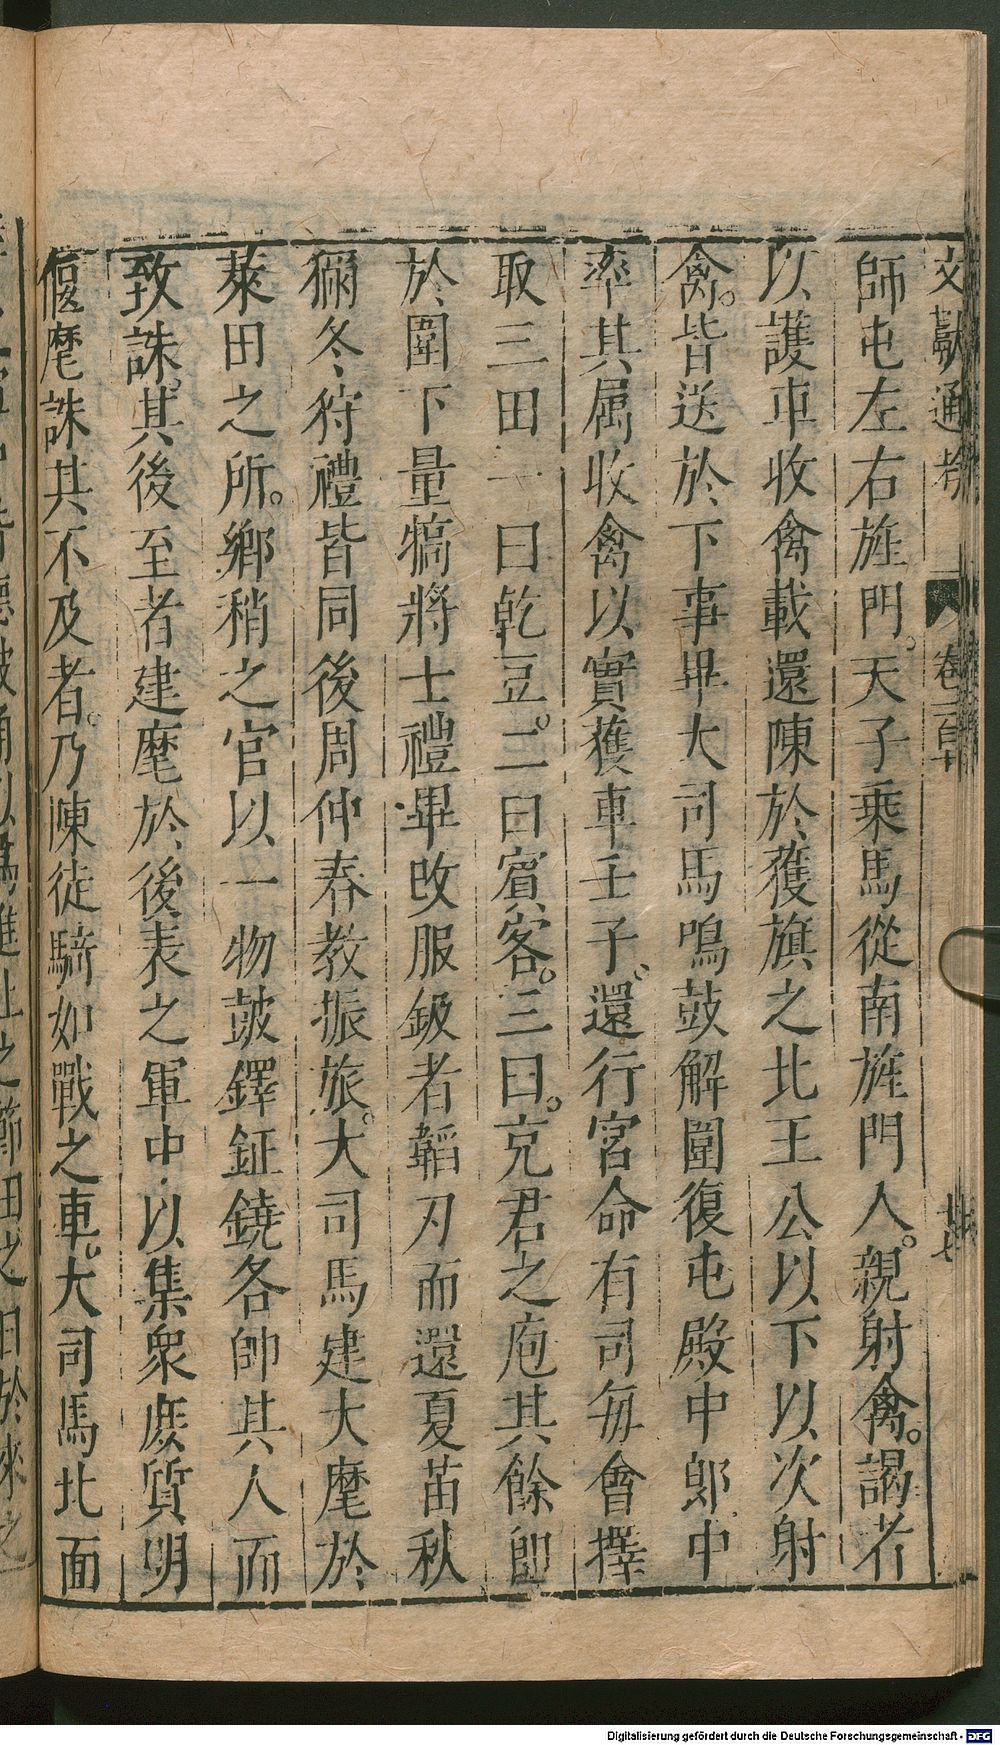 文獻通考 卷一百 廿七
師屯左右旌門。天子乘馬從南旌門入。親射禽。謁者
以護車收禽載還陳於獲旗之北王公以下以次射
禽。皆送於下事畢大司馬鳴鼓解圍復屯殿中郎中
率其属收禽以實獲車壬子。還行宮命有司每會擇
取三田一曰乾豆。二曰賓客。三曰。充君之庖其餘即
於圍下量犒將士禮畢改服鈒者韜刃而還夏苗秋
獮冬狩禮皆同後周仲春教振旅。大司馬建大麾於
萊田之所。鄉稍之官以一物皷鐸鉦鐃各帥其人而
致誅。其後至者建麾於後表之軍中以集衆庶質明
偃麾誅其不及者。乃陳徒騎如戰之車。大司馬北面